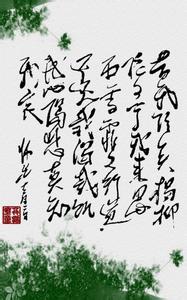 昔我往矣杨柳
依依今我来思
雨雪霏霏行道
迟迟载渴载饥
我心伤悲莫知
我哀